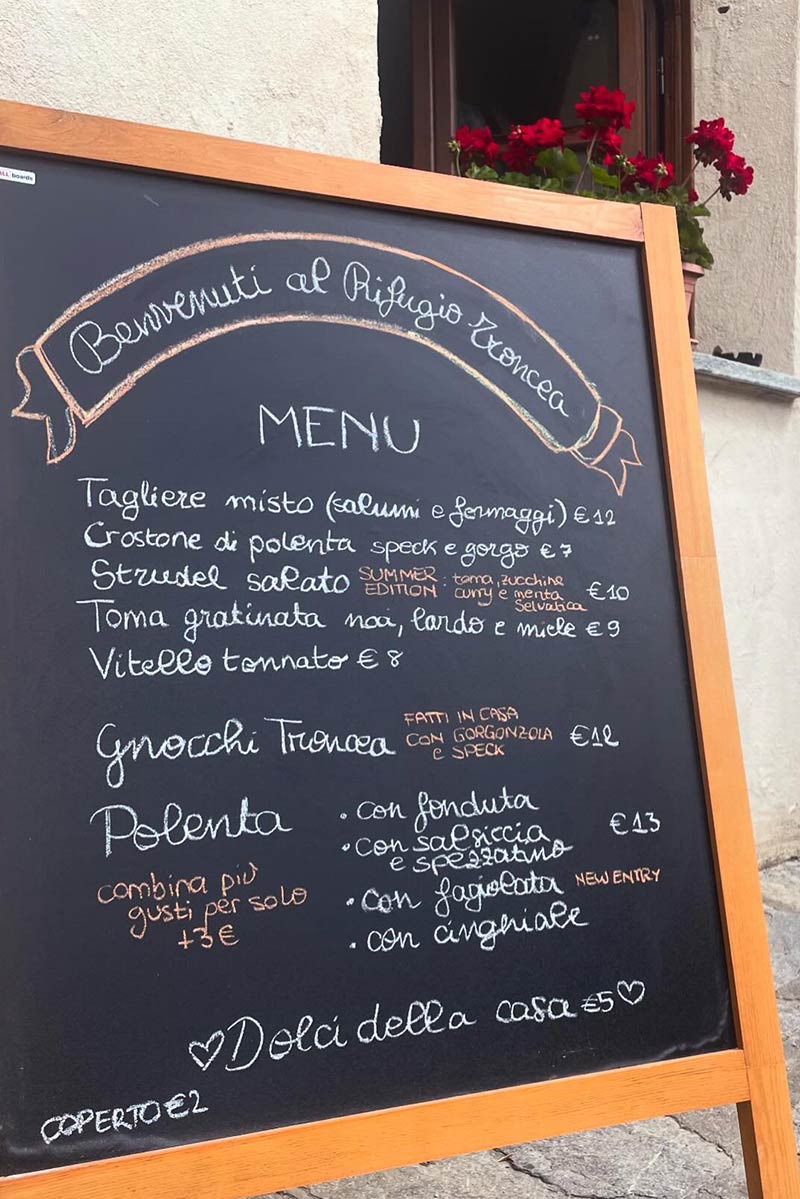 ALL boards
Benvenuti al Rifugio Troncea
MENU
Tagliere misto (salumi e formaggi) €12
Crostone di polenta speck e gorgo €7
Strudel salato SUMMER EDITION: toma, zucchine curry e menta selvatica €10
Toma gratinata noci, lardo e miele €9
Vitello tonnato €8
Gnocchi Troncea FATTI IN CASA CON GORGONZOLA e SPECK €12
Polenta
• con fonduta
• con salsiccia e spezzatino €13
• con fagiolata NEW ENTRY
• con cinghiale
combina più
gusti per solo
+3€
♡Dolci della casa €5♡
COPERTO €2